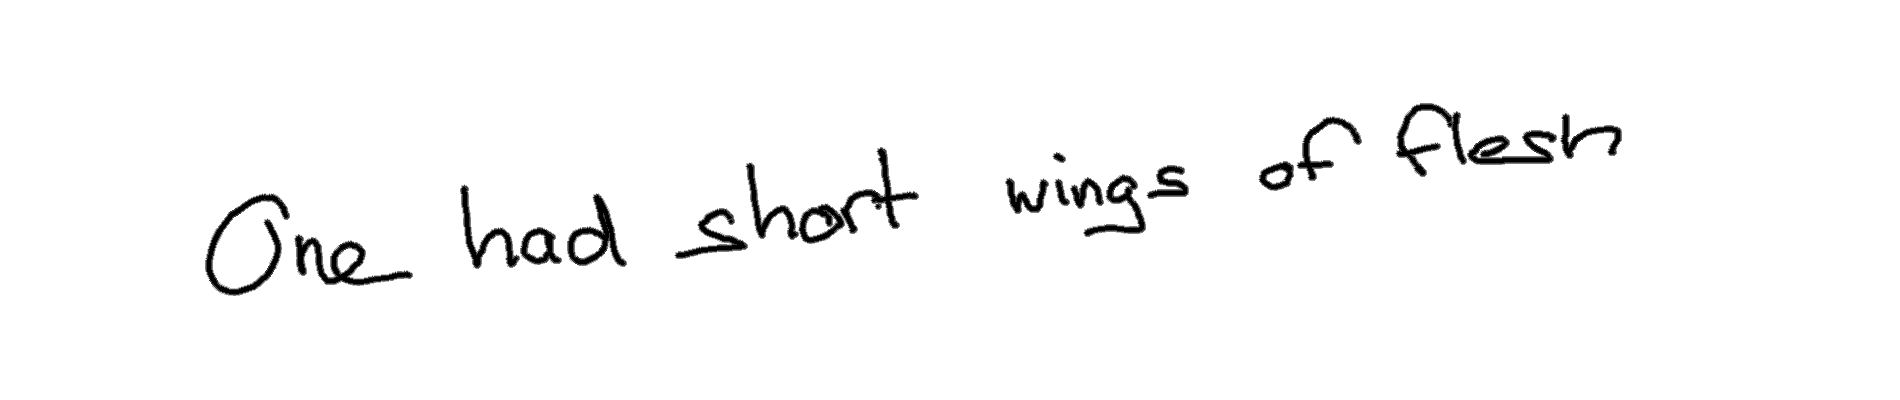 One had short wings of flesh